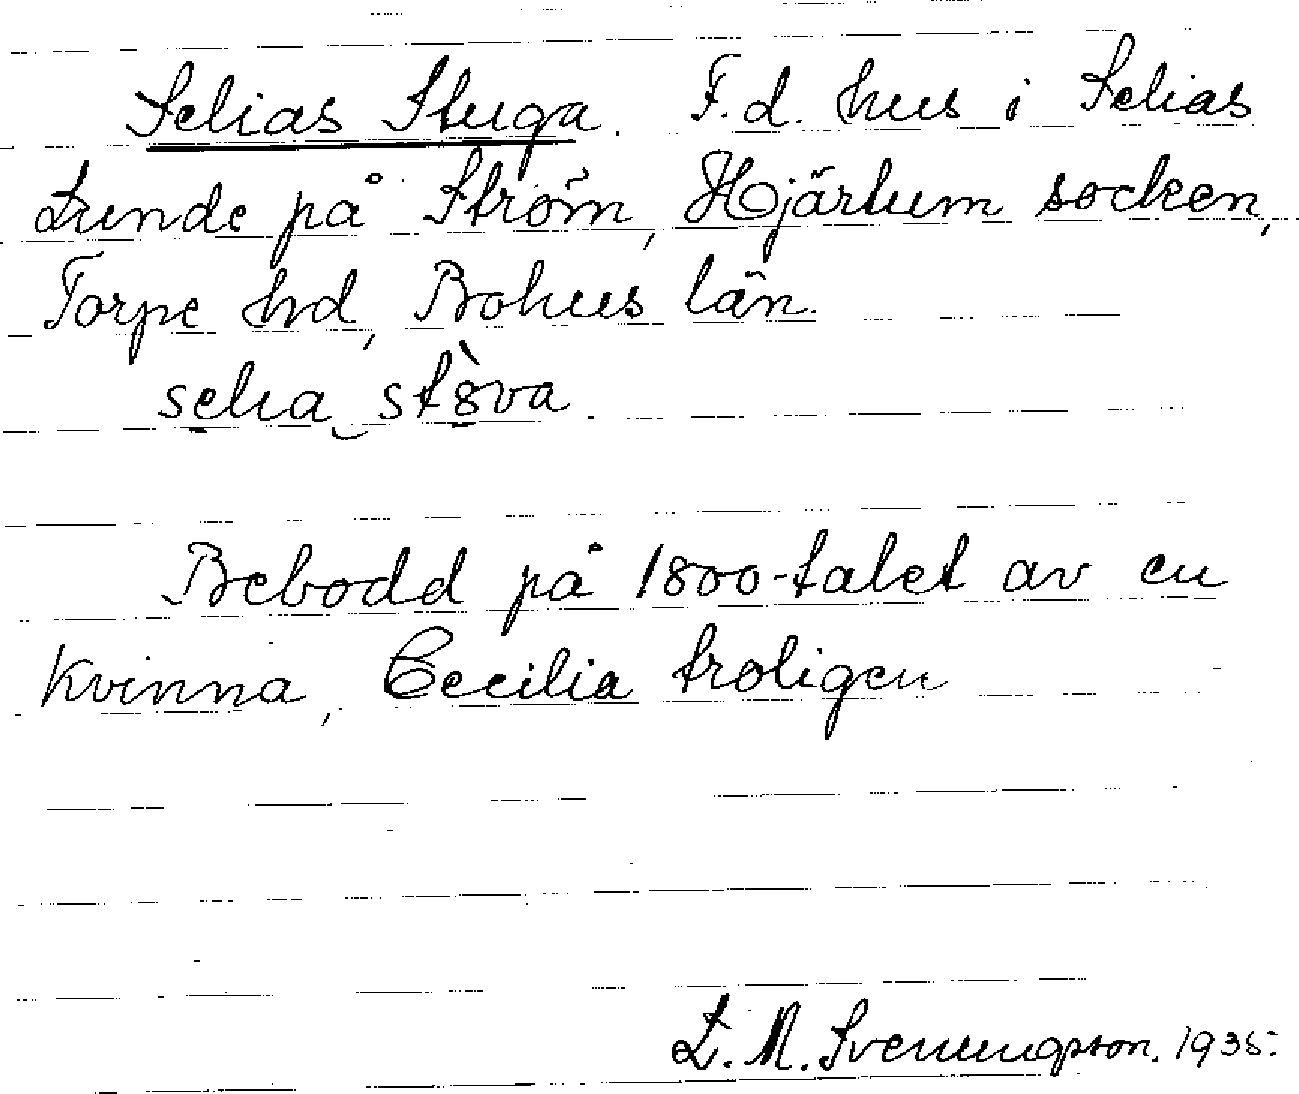 Selias Stuga. F.d. hus i Selias
Lunde på Ström, Hjärtum socken,
Torpe hd, Bohus län.
selia stöva.
Bebodd på 1800-talet av en
kvinna, Cecilia troligen
L. M. Svenungsson. 1935.